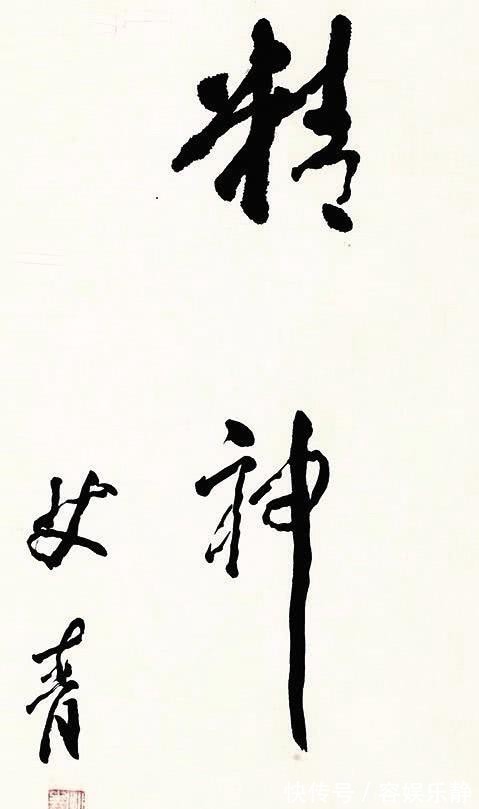 精神
艾青
快传号／容娱乐静